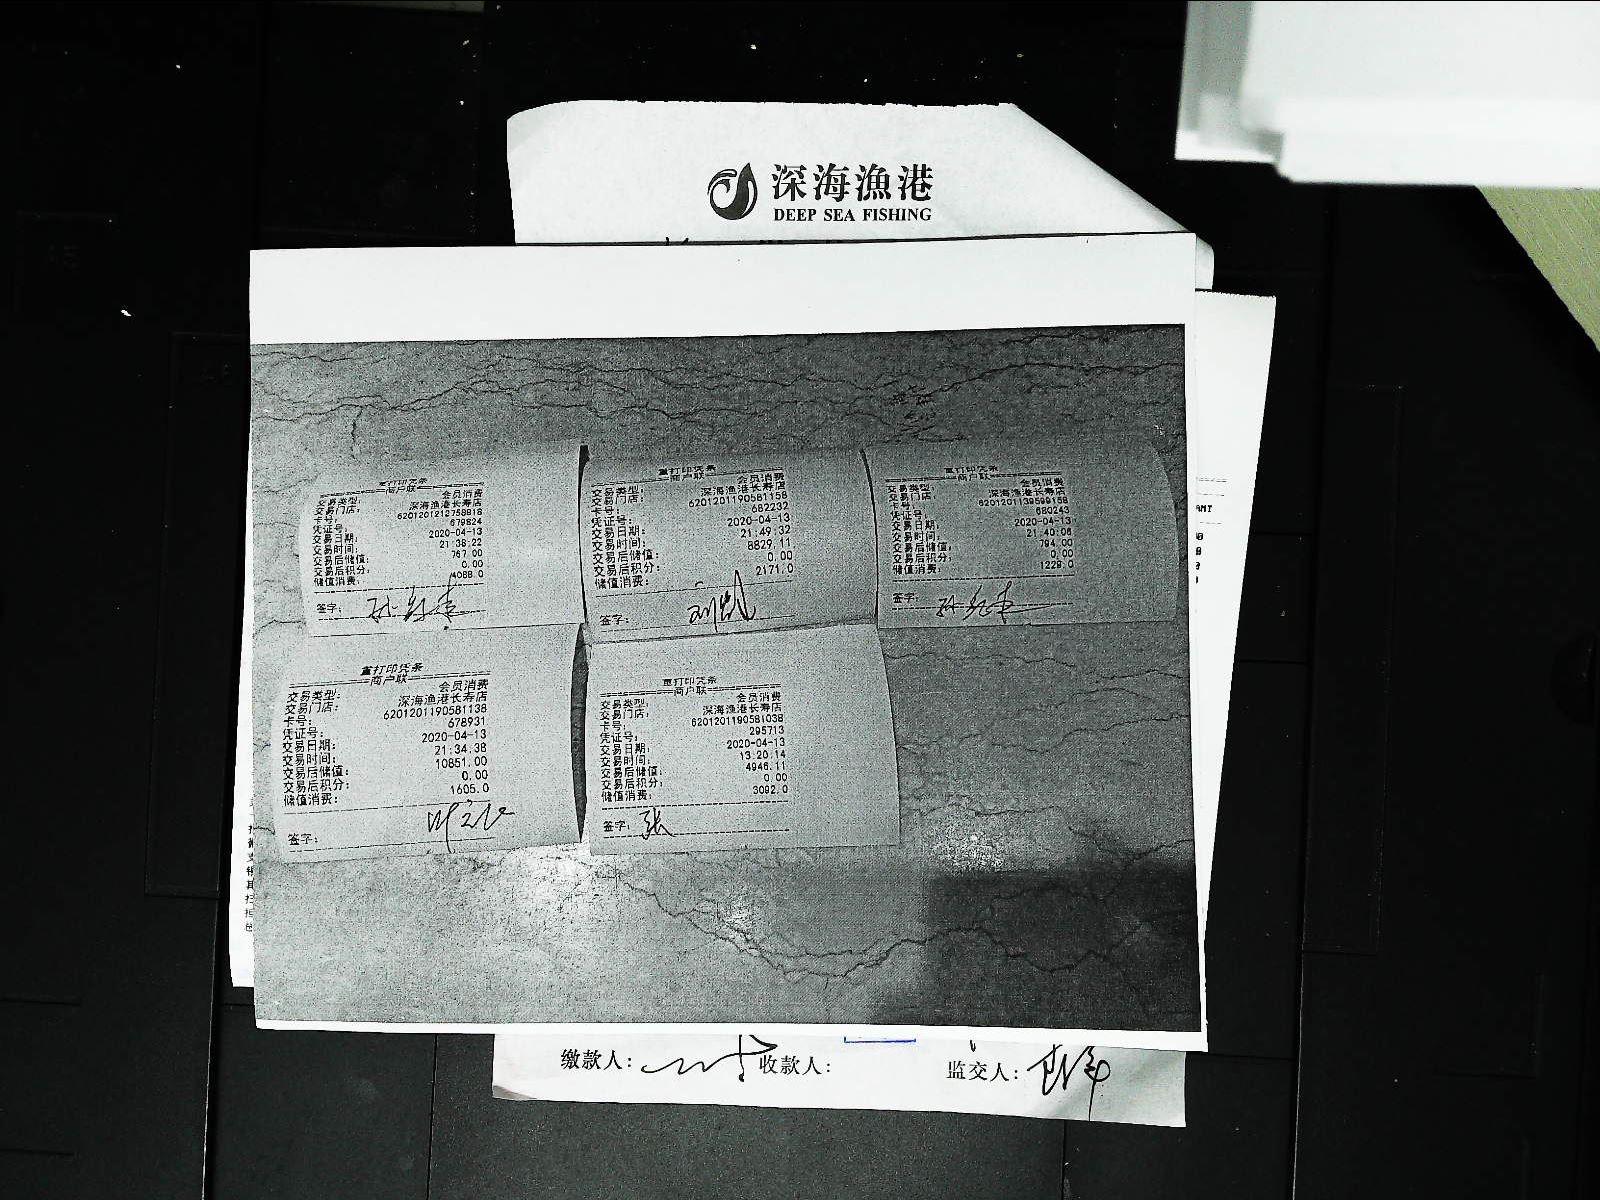 深海漁港
DEEP SEA FISHING
重打印凭条
商户联
交易类型: 会员消费
交易门店: 深海渔港长寿店
卡号: 6201201212758818
凭证号: 679824
交易日期: 2020-04-13
交易时间: 21:38:22
交易后储值: 767.00
交易后积分: 0.00
储值消费: 4088.0
签字:
重打印凭条
商户联
交易类型: 会员消费
交易门店: 深海渔港长寿店
卡号: 6201201190581158
凭证号: 682232
交易日期: 2020-04-13
交易时间: 21:49:32
交易后储值: 8829.11
交易后积分: 0.00
储值消费: 2171.0
签字: 刘凯
重打印凭条
商户联
交易类型: 会员消费
交易门店: 深海渔港长寿店
卡号: 6201201139599158
凭证号: 680243
交易日期: 2020-04-13
交易时间: 21:40:06
交易后储值: 794.00
交易后积分: 0.00
储值消费: 1229.0
签字:
重打印凭条
商户联
交易类型: 会员消费
交易门店: 深海渔港长寿店
卡号: 6201201190581138
凭证号: 678931
交易日期: 2020-04-13
交易时间: 21:34:38
交易后储值: 10851.00
交易后积分: 0.00
储值消费: 1605.0
签字:
重打印凭条
商户联
交易类型: 会员消费
交易门店: 深海渔港长寿店
卡号: 6201201190581038
凭证号: 295713
交易日期: 2020-04-13
交易时间: 13:20:14
交易后储值: 4946.11
交易后积分: 0.00
储值消费: 3092.0
签字: 张
缴款人: 收款人: 监交人: